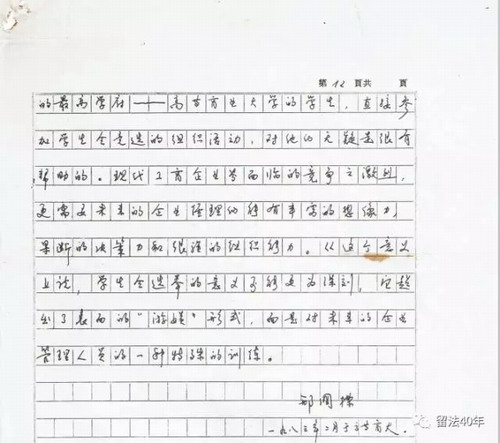 第 12 頁共 頁
的最高学府——高等商业大学的学生，直接参
加学生会竞选的组织活动，对他们无疑是很有
帮助的。现代工商企业界面临的竞争之激烈，
更需要未来的企业经理们能有丰富的想像力，
果断的决策力和很强的组织能力。从这个意义
上说，学生会选举的意义可能更为深刻，它超
出了表面的“游嬉”形式，而是对未来的企业
管理人员的一种特殊的训练。
一九八三年二月于
留法40年